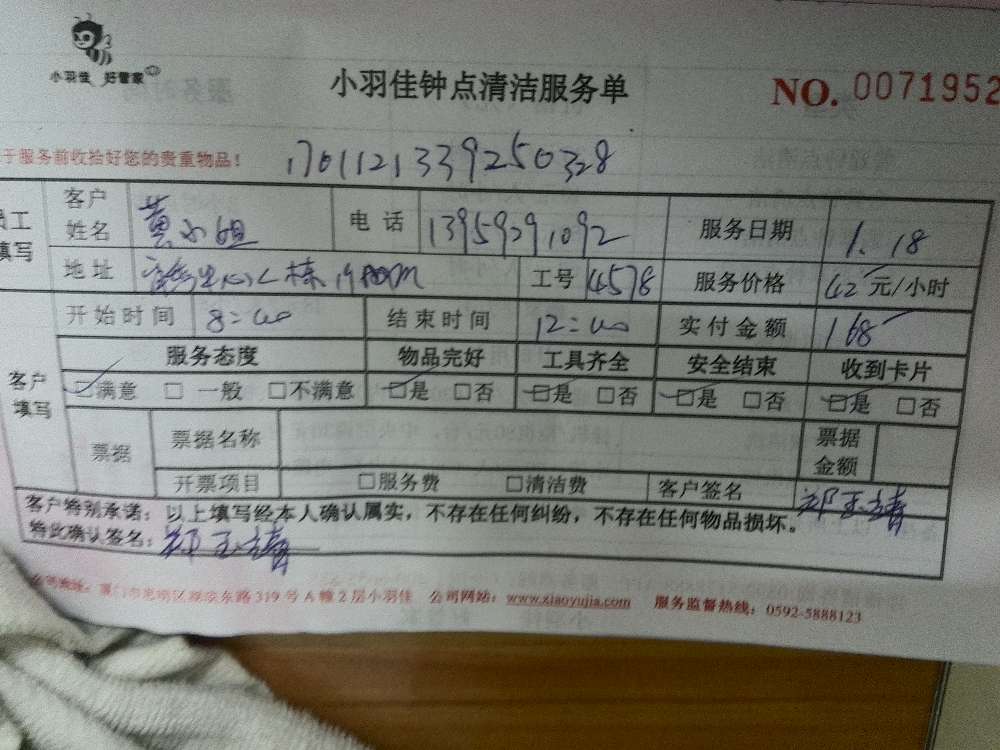 小羽佳 好管家
小羽佳钟点清洁服务单
NO. 0071952
于服务前收拾好您的贵重物品!
1701121339250328
员工填写 客户姓名 黄小姐 电话 13959291092 服务日期 1.18
地址 心L栋 工号 4578 服务价格 42元/小时
客户填写 开始时间 8:00 结束时间 12:00 实付金额 168
服务态度 物品完好 工具齐全 安全结束 收到卡片
☑满意 □一般 □不满意 ☑是 □否 ☑是 □否 ☑是 □否 ☑是 □否
票据 票据名称 票据金额
开票项目 □服务费 □清洁费 客户签名 郑玉靖
客户特别承诺:以上填写经本人确认属实,不存在任何纠纷,不存在任何物品损坏。
特此确认签名:郑玉靖
公司地址:厦门市思明区观音东路319号A幢2层小羽佳 公司网站:www.xiaoyujia.com 服务监督热线:0592-5888123